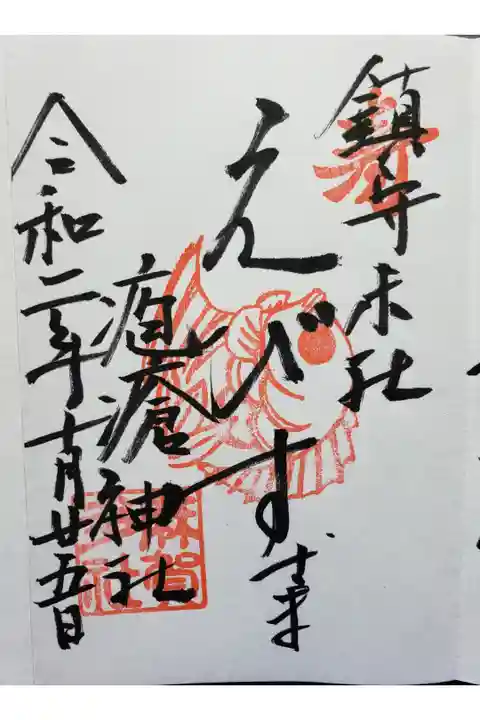 鎮守末社
えびすさま
疱瘡神社
令和二年十月廿五日
麻賀